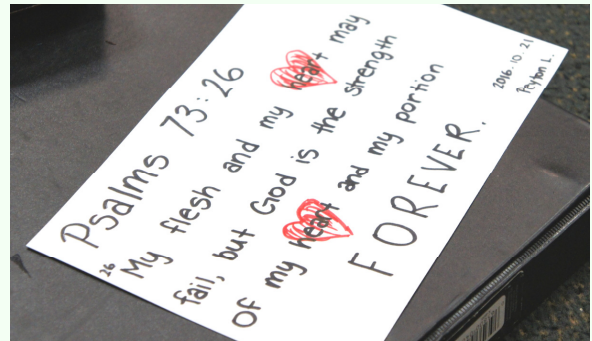 Psalms 73:26
26 My flesh and my heart may
fail, but God is the strength
of my heart and my portion
FOREVER.
2016.10.21
Peyton L.